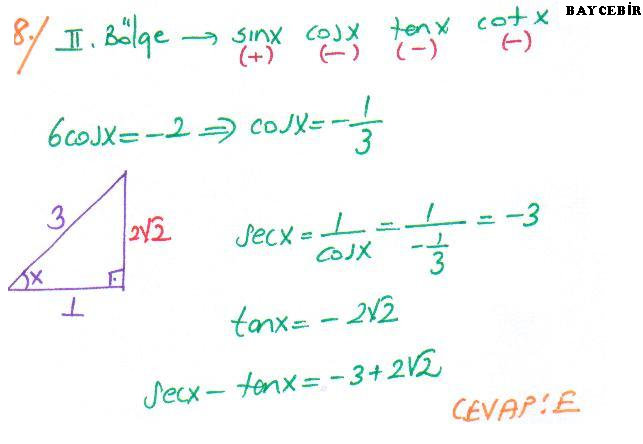 BAYCEBİR
8./ II. Bölge → sinx cosx tanx cotx
(+) (-) (-) (-)
6cosx = -2 ⇒ cosx = -1/3
3
2√2
x
1
secx = 1/cosx = 1/(-1/3) = -3
tanx = -2√2
secx - tanx = -3 + 2√2
CEVAP: E